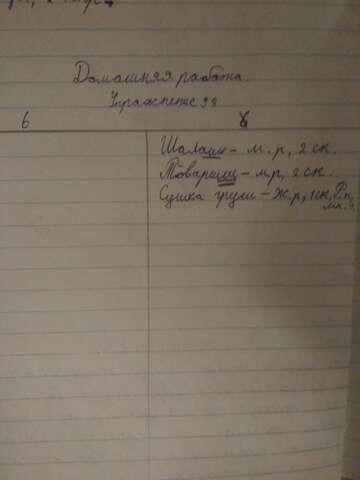 Домашняя работа.
Упражнение 98
б
Шалаш - м. р, 2 ск.
Товарищ - м.р, 2 ск.
Сушка груш - ж.р, 1 ск, Р.п,
мн.ч